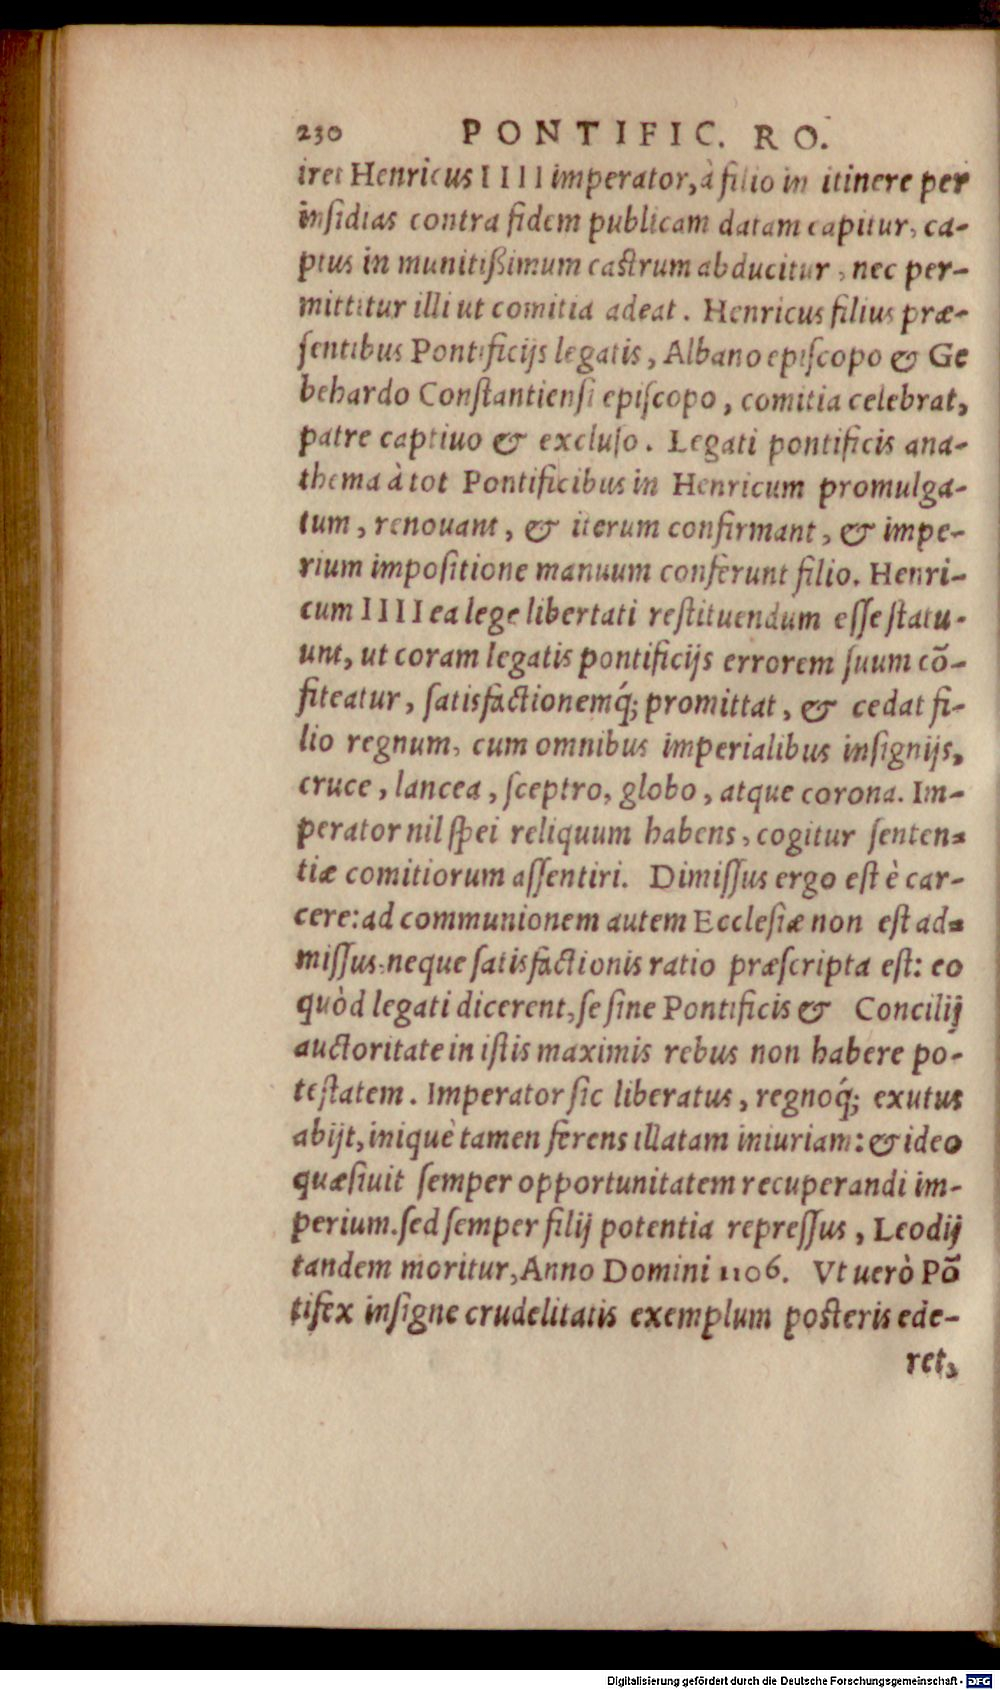 230 PONTIFIC. RO.
iret Henricus IIII imperator, à filio in itinere per
insidias contra fidem publicam datam capitur, ca-
ptus in munitißimum castrum abducitur, nec per-
mittitur illi ut comitia adeat. Henricus filius præ-
sentibus Pontificijs legatis, Albano episcopo & Ge
behardo Constantiensi episcopo, comitia celebrat,
patre captiuo & excluso. Legati pontificis ana-
thema à tot Pontificibus in Henricum promulga-
tum, renouant, & iterum confirmant, & impe-
rium impositione manuum conferunt filio. Henri-
cum IIII ea lege libertati restituendum esse statu-
unt, ut coram legatis pontificijs errorem suum cō-
fiteatur, satisfactionemq́; promittat, & cedat fi-
lio regnum, cum omnibus imperialibus insignijs,
cruce, lancea, sceptro, globo, atque corona. Im-
perator nil spei reliquum habens, cogitur senten-
tiæ comitiorum assentiri. Dimissus ergo est è car-
cere: ad communionem autem Ecclesiæ non est ad-
missus, neque satisfactionis ratio præscripta est: eo
quòd legati dicerent, se sine Pontificis & Concilij
auctoritate in istis maximis rebus non habere po-
testatem. Imperator sic liberatus, regnoq́; exutus
abijt, iniquè tamen ferens illatam iniuriam: & ideo
quæsiuit semper opportunitatem recuperandi im-
perium. sed semper filij potentia repressus, Leodij
tandem moritur, Anno Domini 1106. Vt uerò Pō
tifex insigne crudelitatis exemplum posteris ede-
ret,
Digitalisierung gefördert durch die Deutsche Forschungsgemeinschaft - DFG